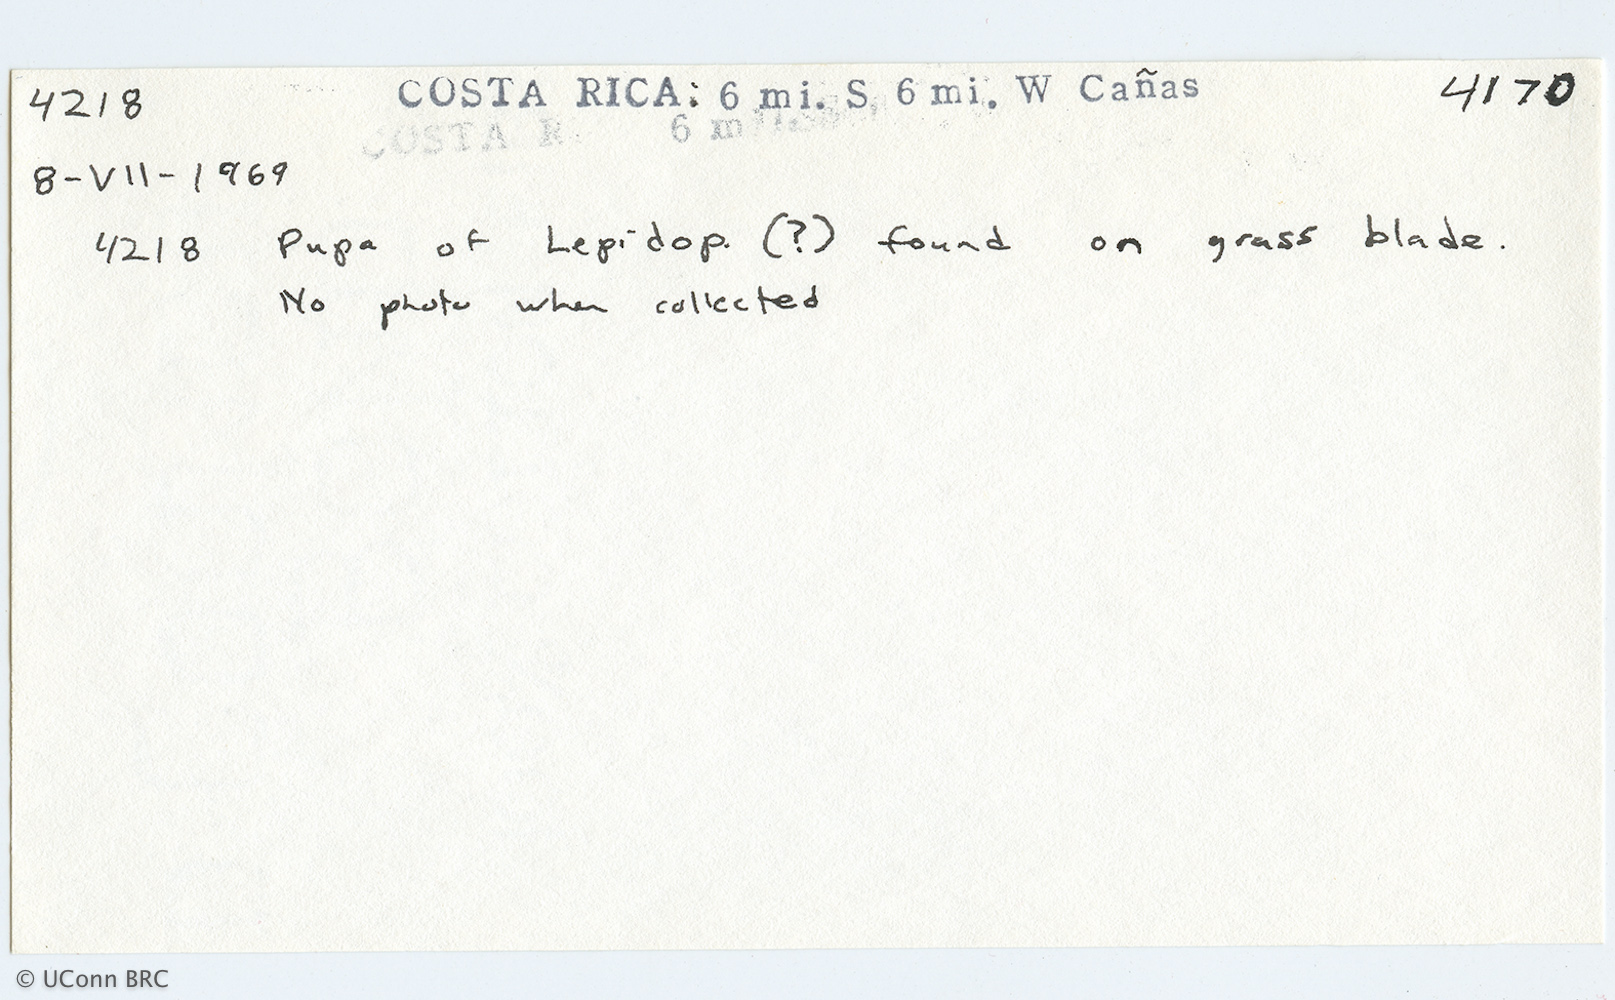 4218 COSTA RICA: 6 mi. S, 6 mi. W Cañas 4170
COSTA R. 6 m
8-VII-1969
4218 Pupa of Lepidop. (?) found on grass blade.
No photo when collected
© UConn BRC